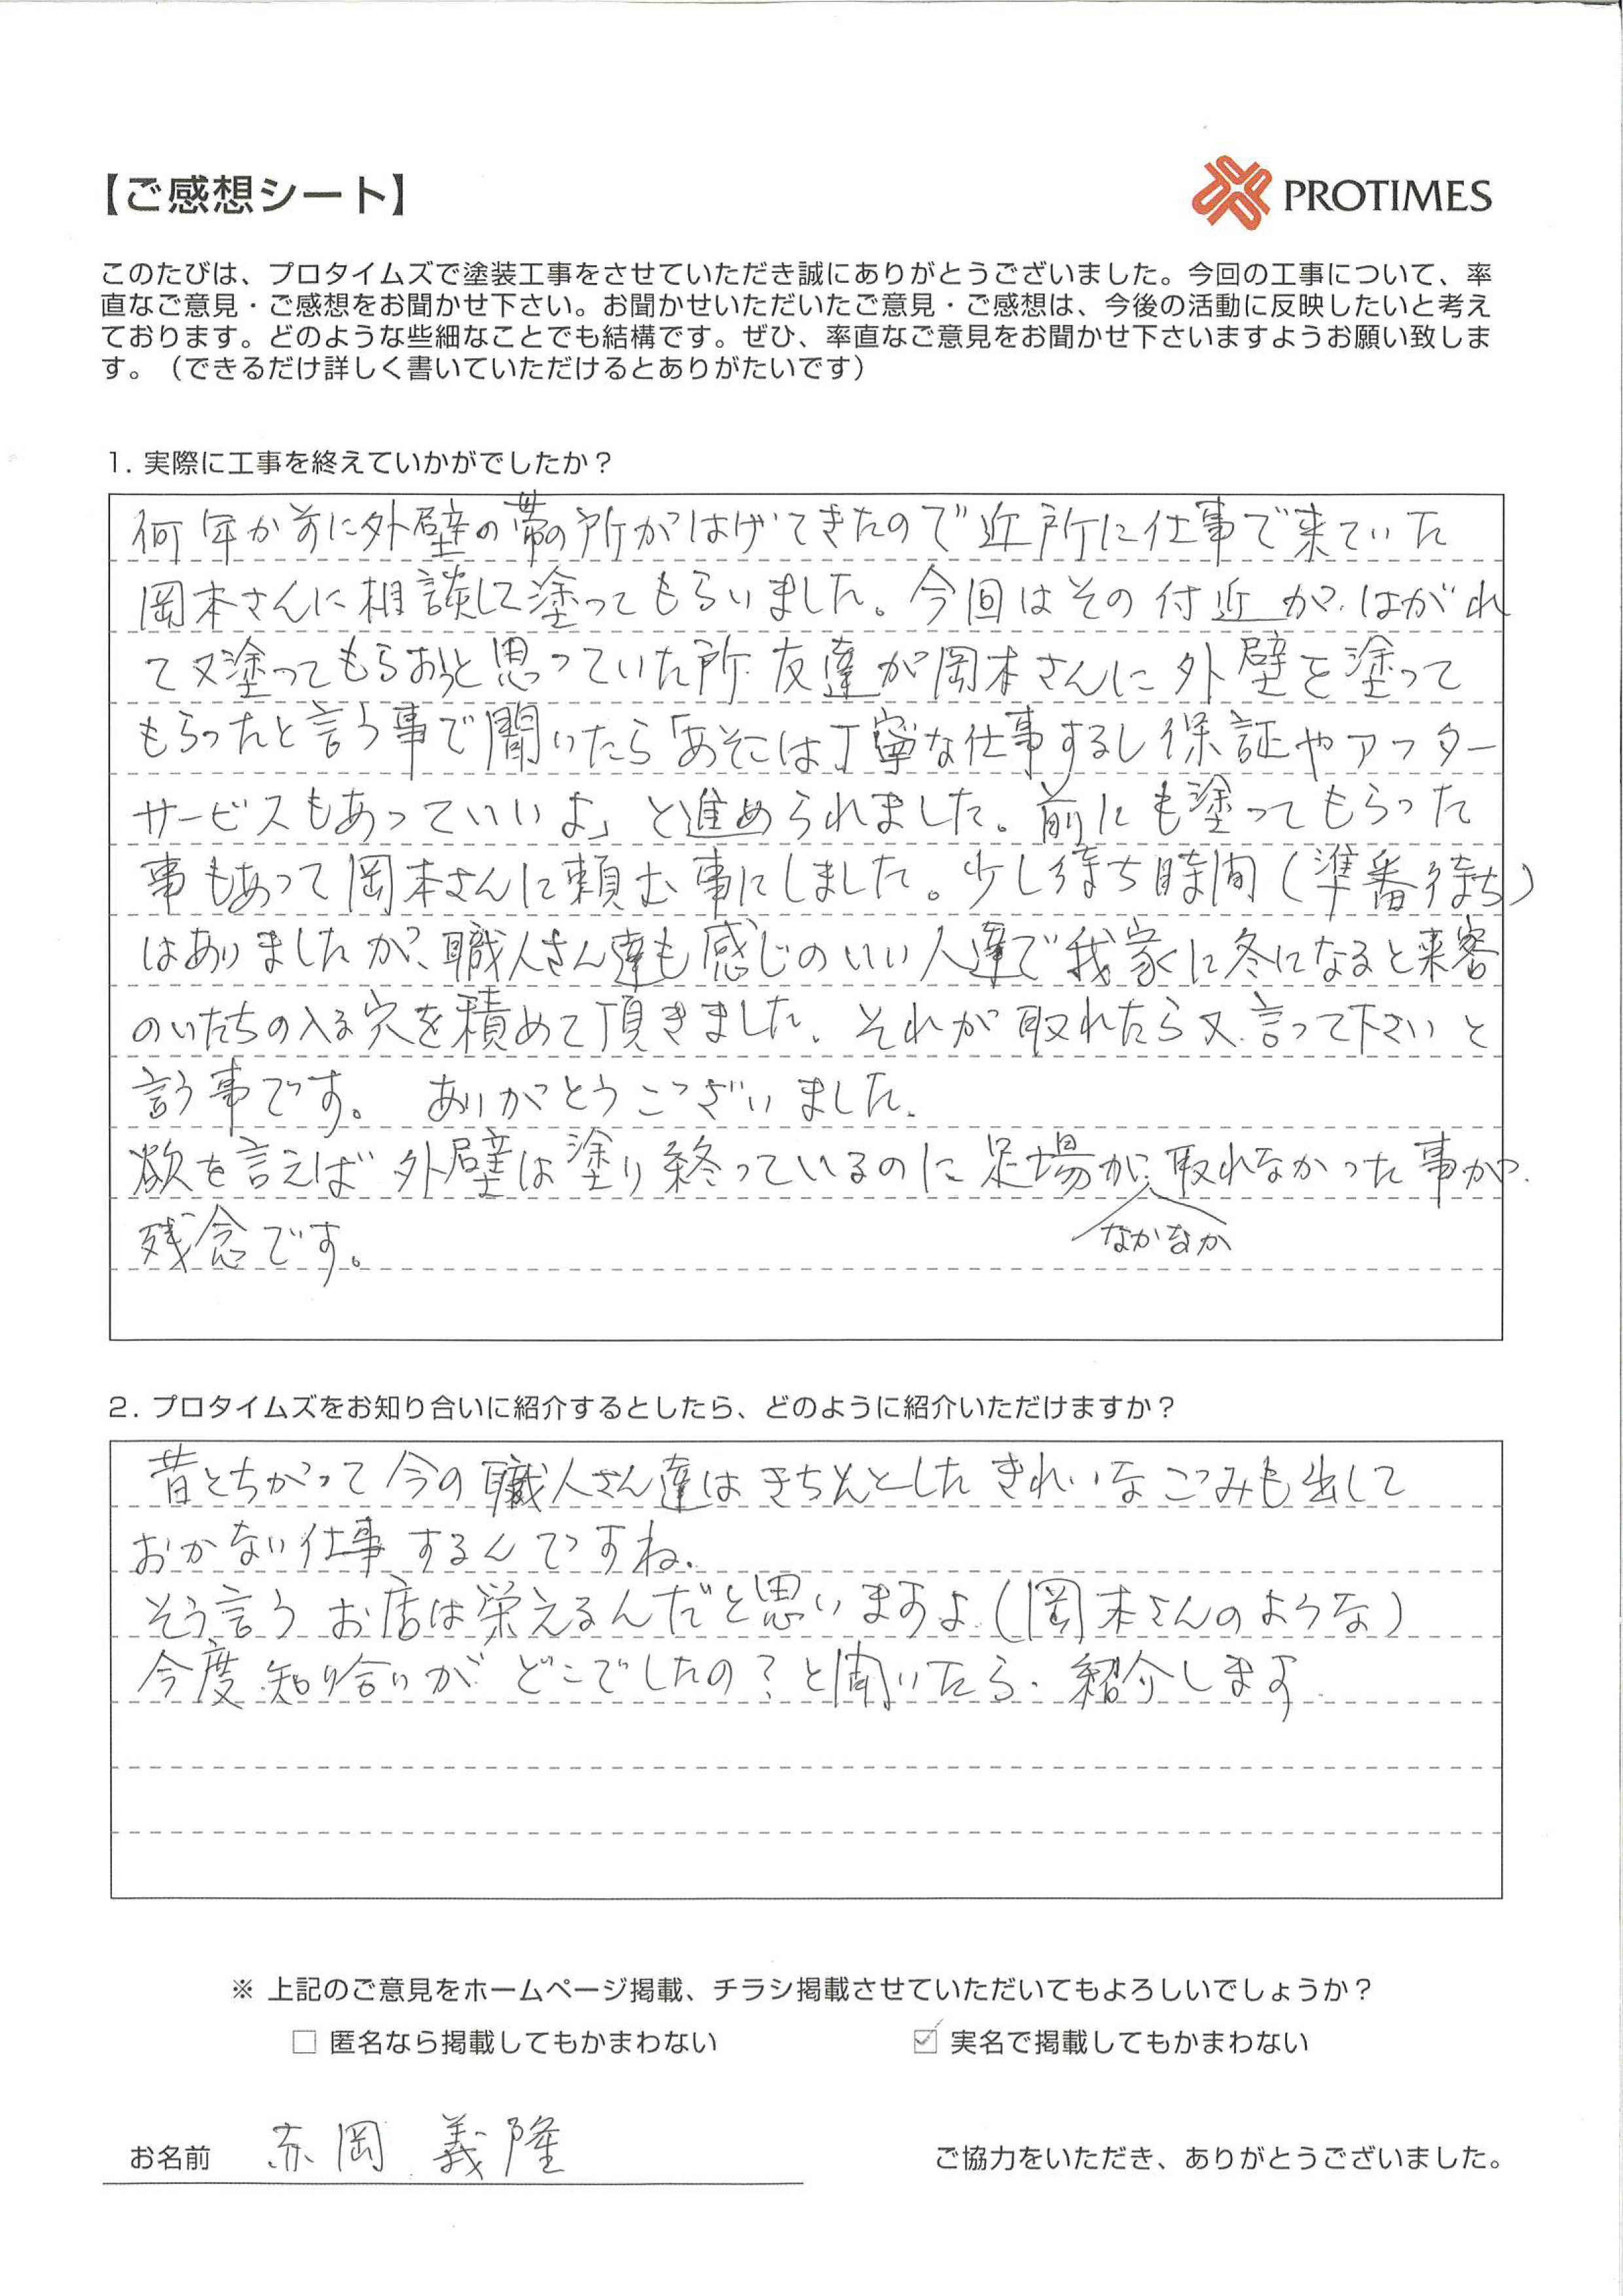 【ご感想シート】
PROTIMES
このたびは、プロタイムズで塗装工事をさせていただき誠にありがとうございました。今回の工事について、率
直なご意見・ご感想をお聞かせ下さい。お聞かせいただいたご意見・ご感想は、今後の活動に反映したいと考え
ております。どのような些細なことでも結構です。ぜひ、率直なご意見をお聞かせ下さいますようお願い致しま
す。（できるだけ詳しく書いていただけるとありがたいです）
1. 実際に工事を終えていかがでしたか？
何年か前に外壁の帯の所がはげてきたので近所に仕事で来ていた
岡本さんに相談して塗ってもらいました。今回はその付近が、はがれ
て又塗ってもらおうと思っていた所、友達が岡本さんに外壁を塗って
もらったと言う事で聞いたら「あそこは丁寧な仕事するし保証やアフター
サービスもあっていいよ」と進められました。前にも塗ってもらった
事もあって岡本さんに頼む事にしました。少し待ち時間（準番待ち）
はありましたが、職人さん達も感じのいい人達で我家に冬になると来客
のいたちの入る穴を積めて頂きました。それが取れたら又言って下さいと
言う事です。 ありがとうございました。
欲を言えば外壁は塗り終っているのに足場が、取れなかった事が、
なかなか
残念です。
2. プロタイムズをお知り合いに紹介するとしたら、どのように紹介いただけますか？
昔とちがって今の職人さん達はきちんとしたきれいなごみも出して
おかない仕事するんですね。
そう言うお店は栄えるんだと思いますよ（岡本さんのような）
今度知り合いがどこでしたの？と聞いたら、紹介します
※ 上記のご意見をホームページ掲載、チラシ掲載させていただいてもよろしいでしょうか？
□ 匿名なら掲載してもかまわない ☑ 実名で掲載してもかまわない
お名前 赤岡 義隆 ご協力をいただき、ありがとうございました。